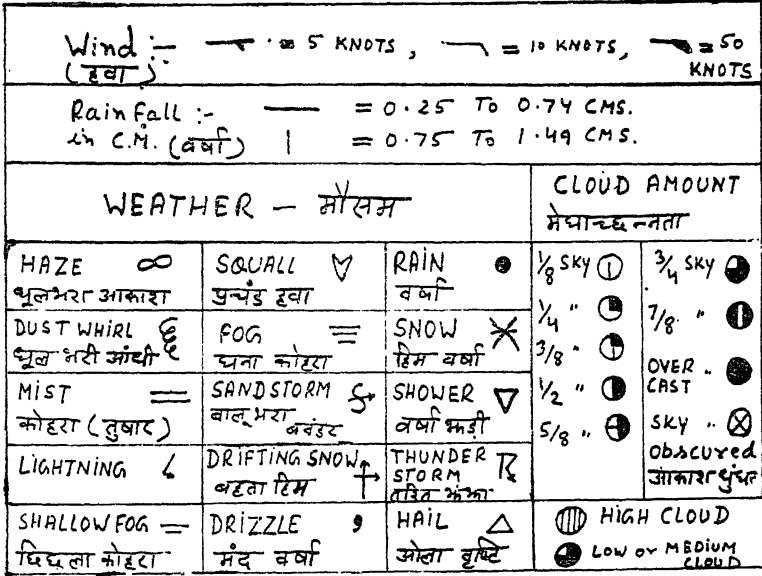 Wind :- = 5 KNOTS, = 10 KNOTS, = 50 KNOTS
(हवा)
Rainfall :- = 0.25 To 0.74 CMS.
in C.M. (वर्षा) | = 0.75 To 1.49 CMS.
WEATHER - मौसम
CLOUD AMOUNT
मेघाच्छन्नता
HAZE
धूलभरा आकाश
SQUALL
प्रचंड हवा
RAIN
वर्षा
DUST WHIRL
धूल भरी आंधी
FOG
घना कोहरा
SNOW
हिम वर्षा
MIST
कोहरा (तुषार)
SANDSTORM
बालू भरा
बवंडर
SHOWER
वर्षा झड़ी
LIGHTNING
DRIFTING SNOW
बहता हिम
THUNDER
STORM
तरित झंझा
SHALLOW FOG
छिछला कोहरा
DRIZZLE
मंद वर्षा
HAIL
ओला वृष्टि
1/8 SKY
1/4 "
3/8 "
1/2 "
5/8 "
3/4 SKY
7/8 "
OVER "
CAST
SKY "
Obscured
आकाश धुंधल
HIGH CLOUD
LOW or MEDIUM
CLOUD